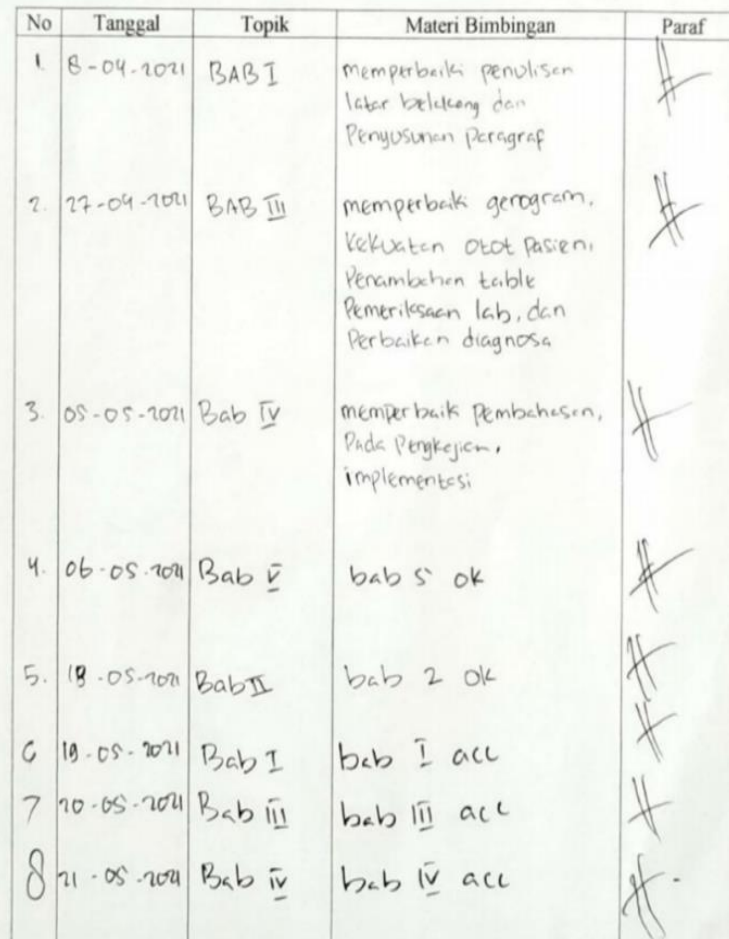 No Tanggal Topik Materi Bimbingan Paraf
1. 8-04-2021 BAB I memperbaiki penulisan
latar belakang dan
Penyusunan paragraf
2. 27-04-2021 BAB III memperbaiki gerogram,
Kekuatan otot Pasien,
Penambahan table
Pemeriksaan lab, dan
Perbaikan diagnosa
3. 05-05-2021 Bab IV memperbaik Pembahasan,
Pada Pengkajian,
implementasi
4. 06-05-2021 Bab V bab 5 ok
5. 18-05-2021 Bab II bab 2 ok
6 19-05-2021 Bab I bab I acc
7 20-05-2021 Bab III bab III acc
8 21-05-2021 Bab IV bab IV acc